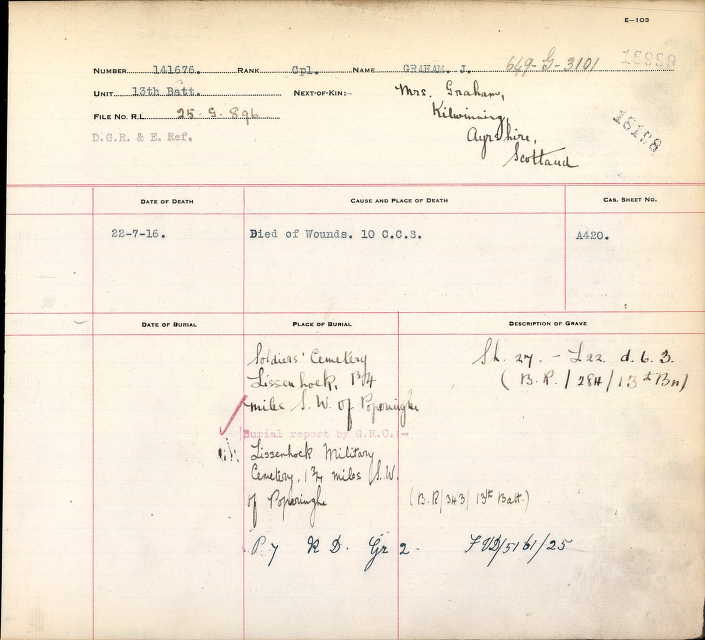 E—103
NUMBER 141676. RANK Cpl. NAME GRAHAM. J. 649-G-3101
UNIT 13th Batt. NEXT-OF-KIN:- Mrs. Graham,
Kilwinning,
FILE NO. R.L. 25-G-896
D.G.R. & E. Ref.
Ayrshire,
Scotland
DATE OF DEATH CAUSE AND PLACE OF DEATH CAS. SHEET NO.
22-7-16. Died of Wounds. 10 C.C.S. A420.
DATE OF BURIAL PLACE OF BURIAL DESCRIPTION OF GRAVE
Soldiers' Cemetery Sh. 27. - L22 d. 6. 3.
Lissenhock, 1 3/4 (B.R./284/13th Bn)
miles S.W. of Poperinghe
Burial report by G.R.C.:-
Lissenhock Military
Cemetery, 1 3/4 miles S.W.
of Poperinghe (B.R/343/13th Batt.)
P. 7 R D. Gr 2.